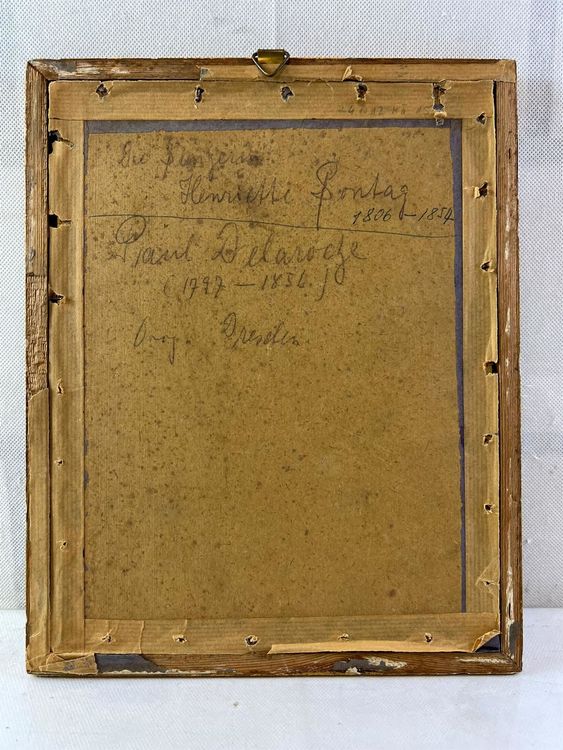 Die Sängerin
Henriette Sontag
1806 – 1854
Paul Delaroche
(1797 – 1856.)
Orig. Dresden